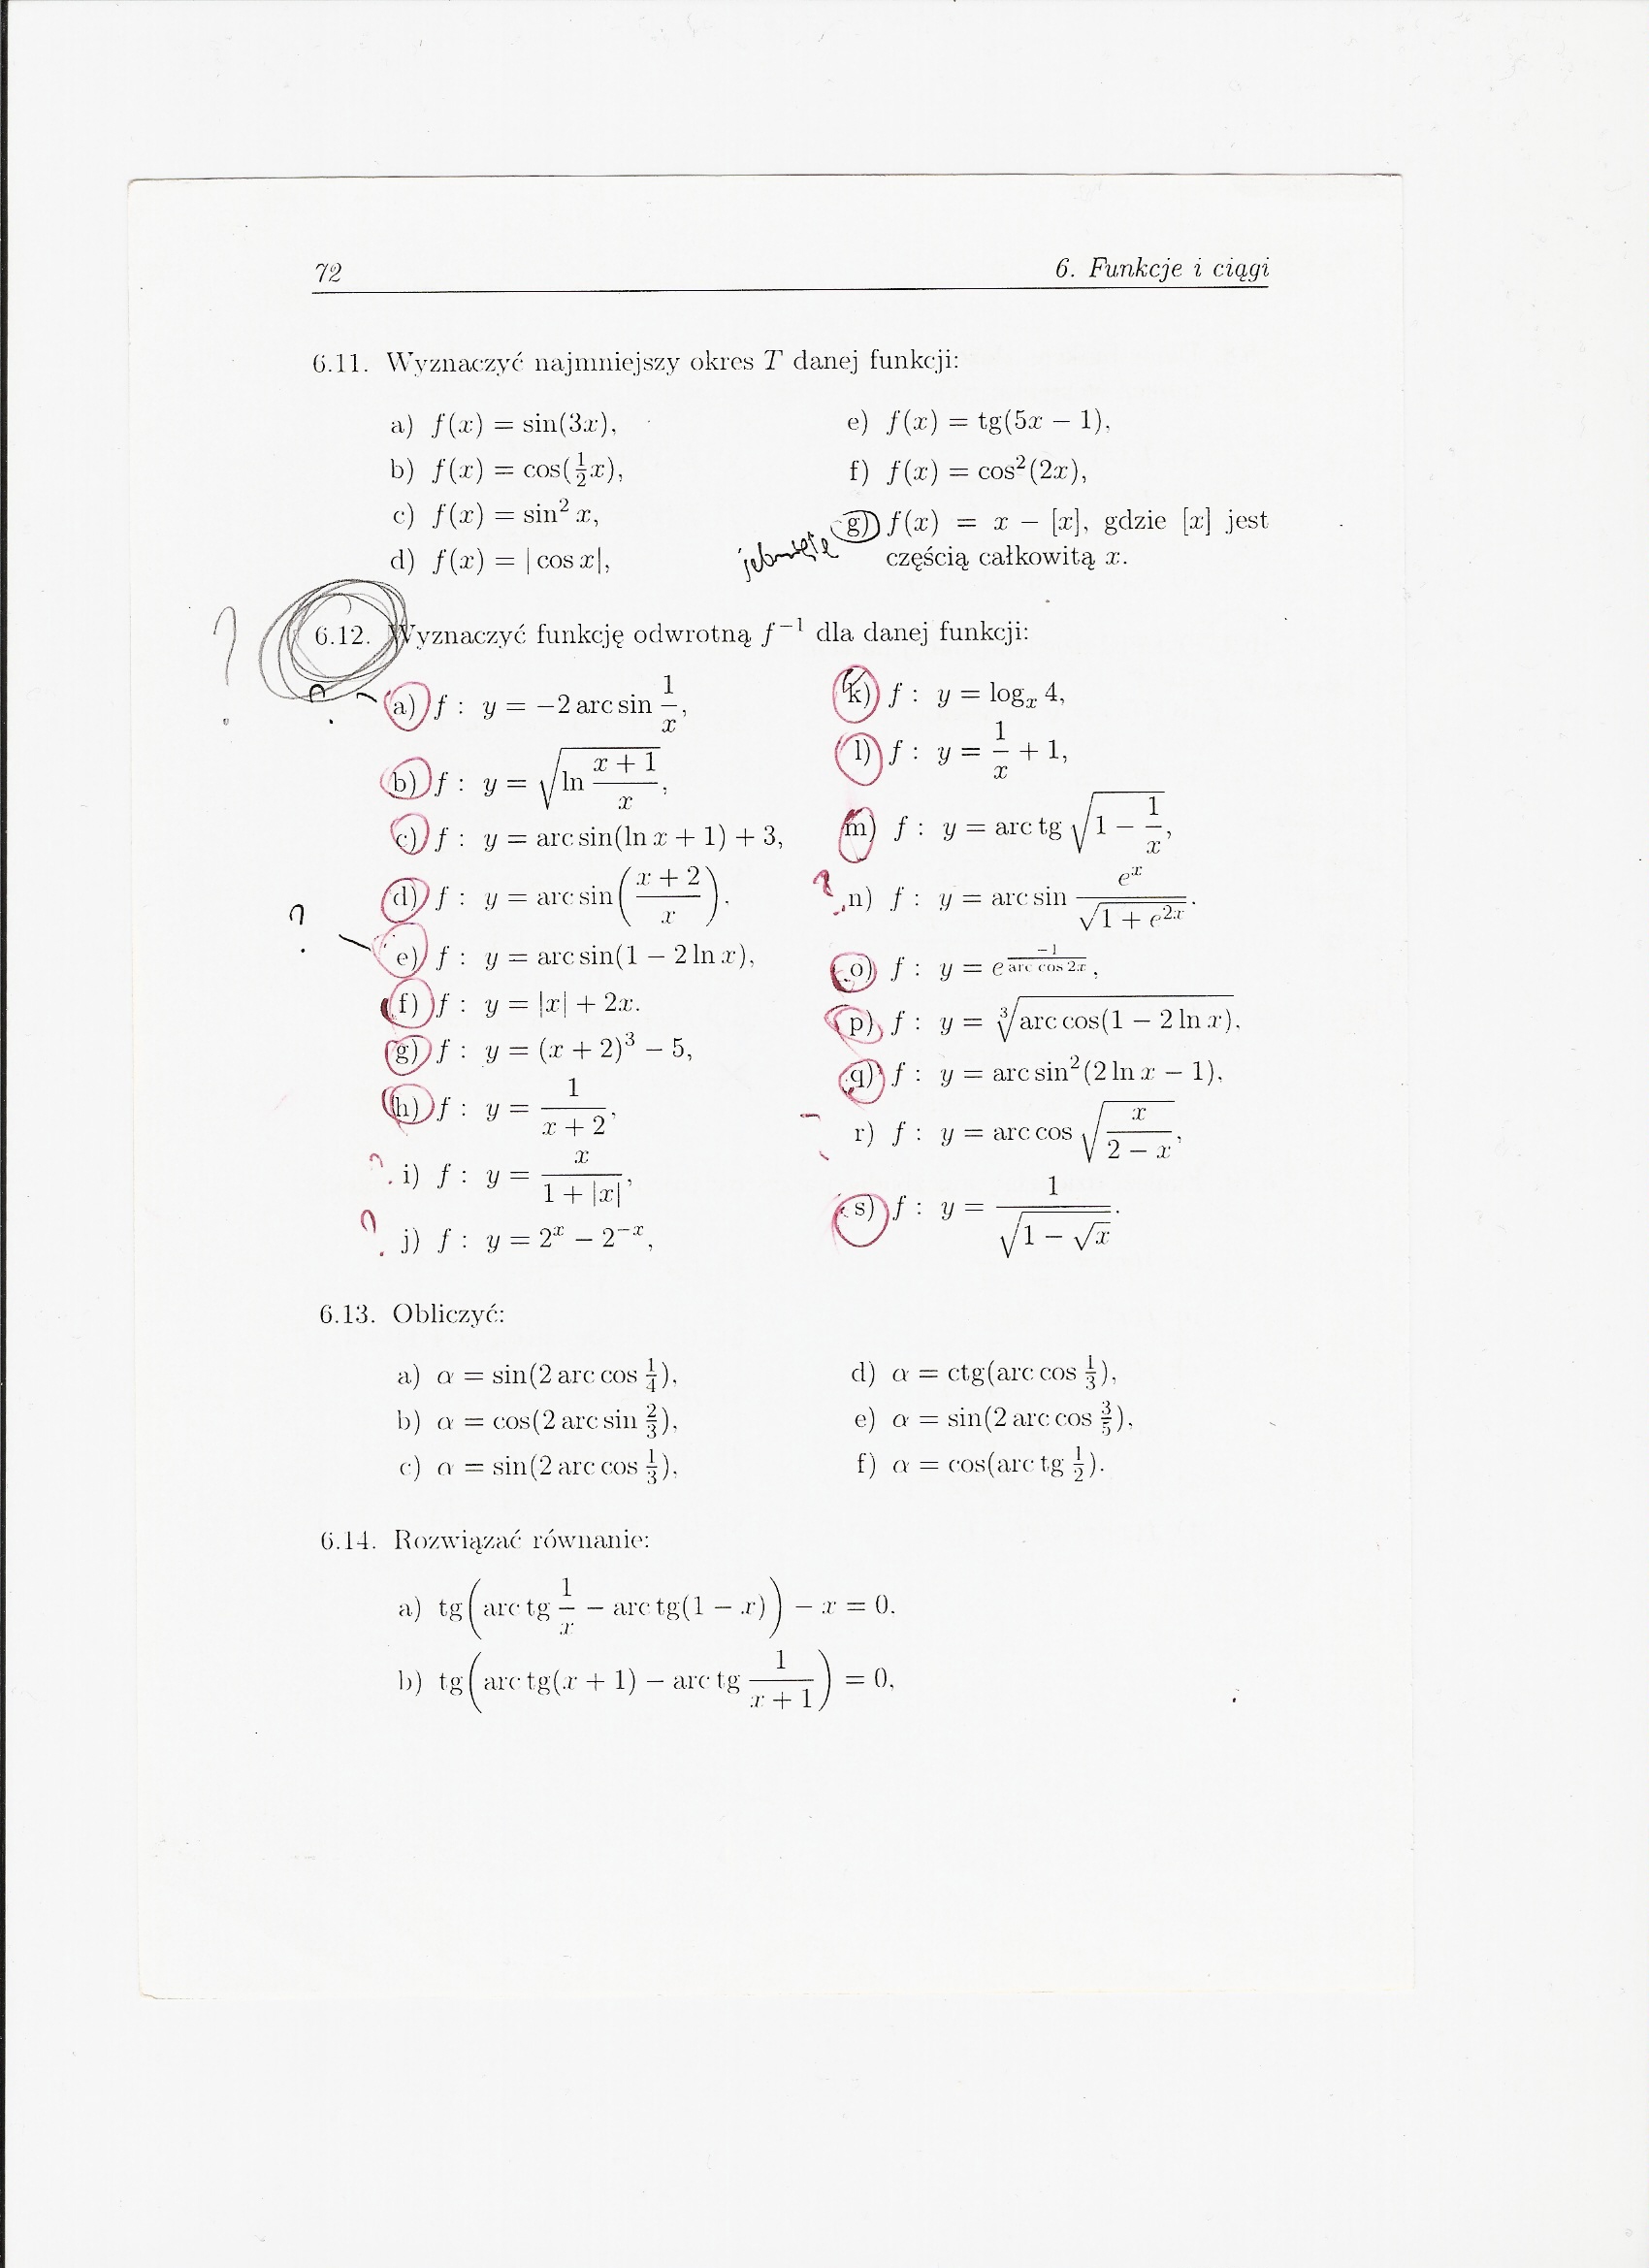 72 6. Funkcje i ciągi
6.11. Wyznaczyć najmniejszy okres T danej funkcji:
a) f(x) = sin(3x),
b) f(x) = cos(½x),
c) f(x) = sin² x,
d) f(x) = | cos x|,
e) f(x) = tg(5x − 1),
f) f(x) = cos²(2x),
g) f(x) = x − [x], gdzie [x] jest
częścią całkowitą x.
? 6.12. Wyznaczyć funkcję odwrotną f⁻¹ dla danej funkcji:
? a) f : y = −2 arc sin 1/x,
b) f : y = √(ln (x + 1)/x),
c) f : y = arc sin(ln x + 1) + 3,
d) f : y = arc sin((x + 2)/x),
? e) f : y = arc sin(1 − 2 ln x),
f) f : y = |x| + 2x.
g) f : y = (x + 2)³ − 5,
h) f : y = 1/(x + 2),
? i) f : y = x/(1 + |x|),
? j) f : y = 2ˣ − 2⁻ˣ,
k) f : y = logₓ 4,
l) f : y = 1/x + 1,
m) f : y = arc tg √(1 − 1/x),
? n) f : y = arc sin eˣ/√(1 + e²ˣ).
o) f : y = e^(−1/(arc cos 2x)),
p) f : y = ∛(arc cos(1 − 2 ln x)),
q) f : y = arc sin²(2 ln x − 1),
r) f : y = arc cos √(x/(2 − x)),
s) f : y = 1/√(1 − √x).
6.13. Obliczyć:
a) α = sin(2 arc cos ¼),
b) α = cos(2 arc sin ⅔),
c) α = sin(2 arc cos ⅓),
d) α = ctg(arc cos ⅓),
e) α = sin(2 arc cos ⅗),
f) α = cos(arc tg ½).
6.14. Rozwiązać równanie:
a) tg(arc tg 1/x − arc tg(1 − x)) − x = 0.
b) tg(arc tg(x + 1) − arc tg 1/(x + 1)) = 0,